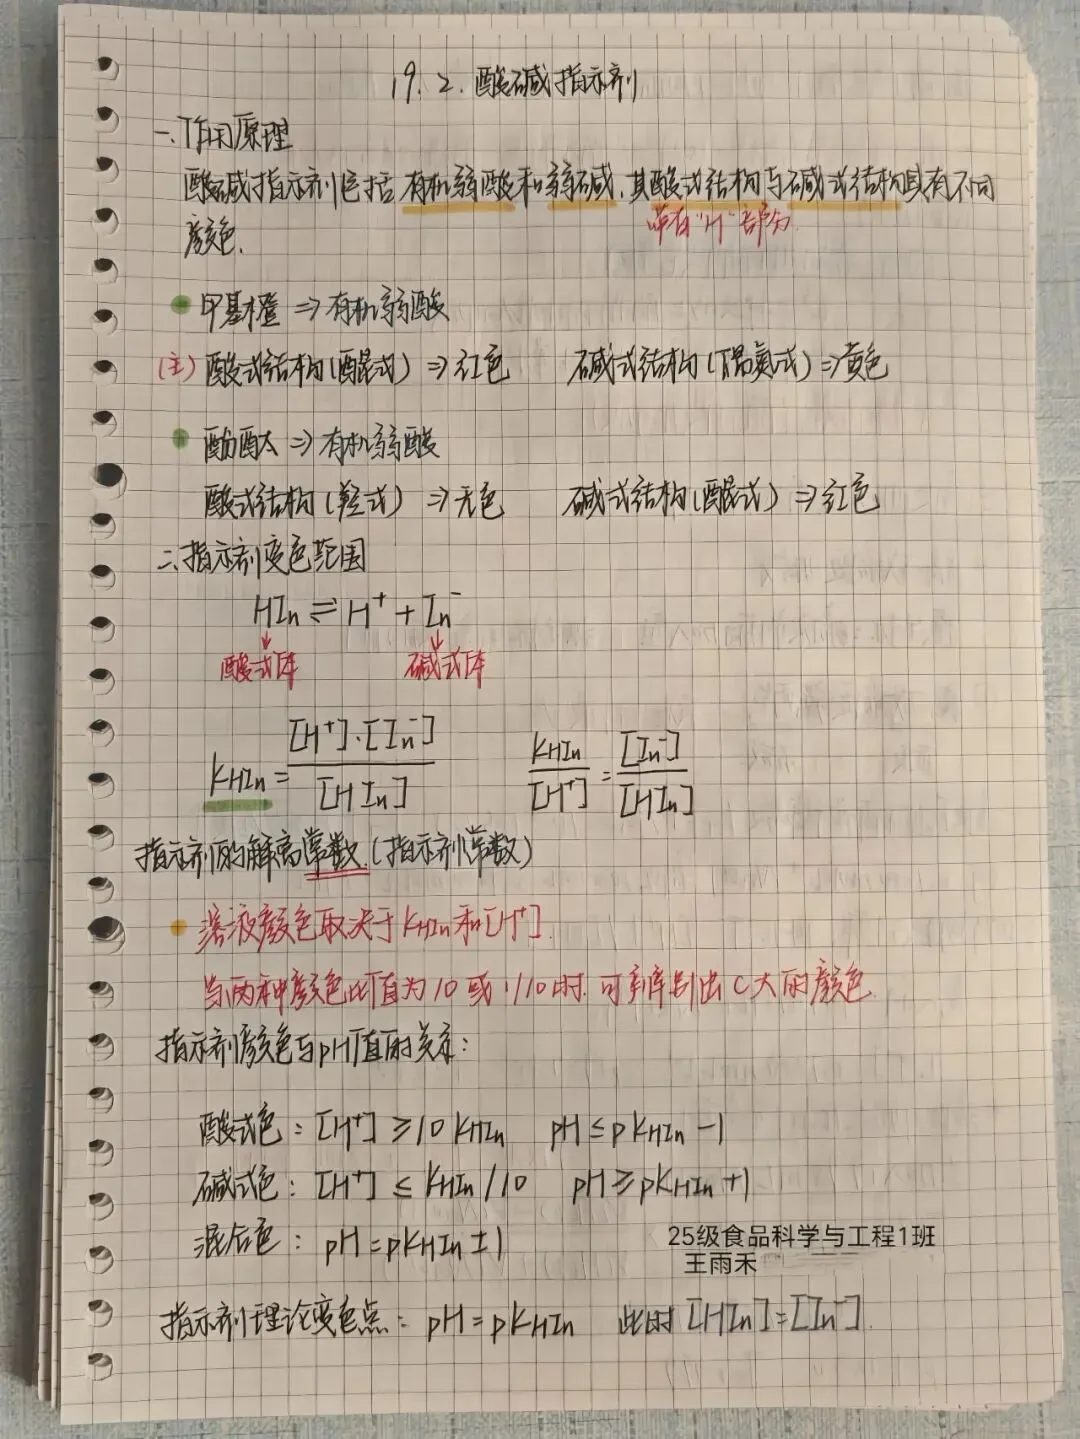 19.2.酸碱指示剂
一.作用原理
酸碱指示剂包括有机弱酸和弱碱.其酸式结构与碱式结构具有不同
带有"H"部分.
颜色.
甲基橙⇒有机弱酸
(主)酸式结构(醌式)⇒红色 碱式结构(偶氮式)⇒黄色
酚酞⇒有机弱酸
酸式结构(羟式)⇒无色 碱式结构(醌式)⇒红色
二.指示剂变色范围
HIn⇌H⁺+In⁻
酸式体 碱式体
KHIn=[H⁺]·[In⁻]/[HIn] KHIn/[H⁺]=[In⁻]/[HIn]
指示剂的解离常数.(指示剂常数)
溶液颜色取决于KHIn和[H⁺].
当两种颜色比值为10或1/10时.可辨别出C大的颜色.
指示剂颜色与pH值的关系:
酸式色:[H⁺]≥10KHIn pH≤pKHIn-1
碱式色:[H⁺]≤KHIn/10 pH≥pKHIn+1
混合色:pH=pKHIn±1
25级食品科学与工程1班
王雨禾
指示剂理论变色点:pH=pKHIn 此时[HIn]=[In⁻].